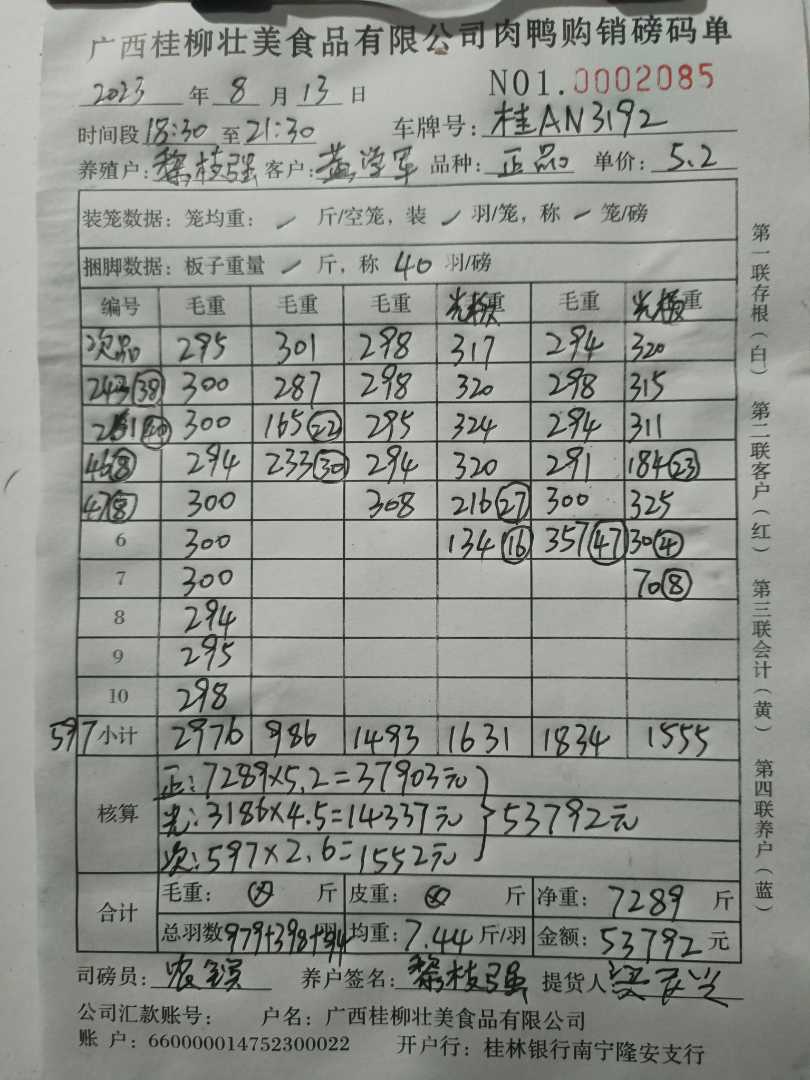 广西桂柳壮美食品有限公司肉鸭购销磅码单
2023 年 8 月 13 日 NO1.0002085
时间段 18:30 至 21:30 车牌号: 桂AN3192
养殖户: 黎枝强 客户: 黄学军 品种: 正品 单价: 5.2
装笼数据: 笼均重: / 斤/空笼, 装 / 羽/笼, 称 / 笼/磅
捆脚数据: 板子重量 / 斤, 称 40 羽/磅
编号 毛重 毛重 毛重 光板 毛重 光板
次品 295 301 298 317 294 320
243(38) 300 287 298 320 298 315
300 165(22) 295 324 294 311
46(8) 294 233(30) 294 320 291 184(23)
47(8) 300 308 216(27) 300 325
6 300 134(16) 357(47) 30(4)
7 300 70(8)
8 294
9 295
10 298
597 小计 2976 986 1493 1631 1834 1555
核算 正:7289×5.2=37903元
光:3186×4.5=14337元 53792元
次:597×2.6=1552元
合计 毛重: 斤 皮重: 斤 净重: 7289 斤
总羽数 979+398+94 羽 均重: 7.44 斤/羽 金额: 53792 元
司磅员: 养户签名: 黎枝强 提货人
公司汇款账号: 户名: 广西桂柳壮美食品有限公司
账 户: 660000014752300022 开户行: 桂林银行南宁隆安支行
第一联存根(白) 第二联客户(红) 第三联会计(黄) 第四联养户(蓝)